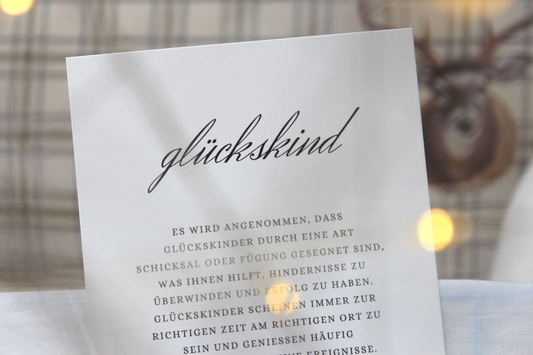 glückskind
ES WIRD ANGENOMMEN, DASS
GLÜCKSKINDER DURCH EINE ART
SCHICKSAL ODER FÜGUNG GESEGNET SIND,
WAS IHNEN HILFT, HINDERNISSE ZU
ÜBERWINDEN UND ERFOLG ZU HABEN.
GLÜCKSKINDER SCHEINEN IMMER ZUR
RICHTIGEN ZEIT AM RICHTIGEN ORT ZU
SEIN UND GENIESSEN HÄUFIG
EREIGNISSE.